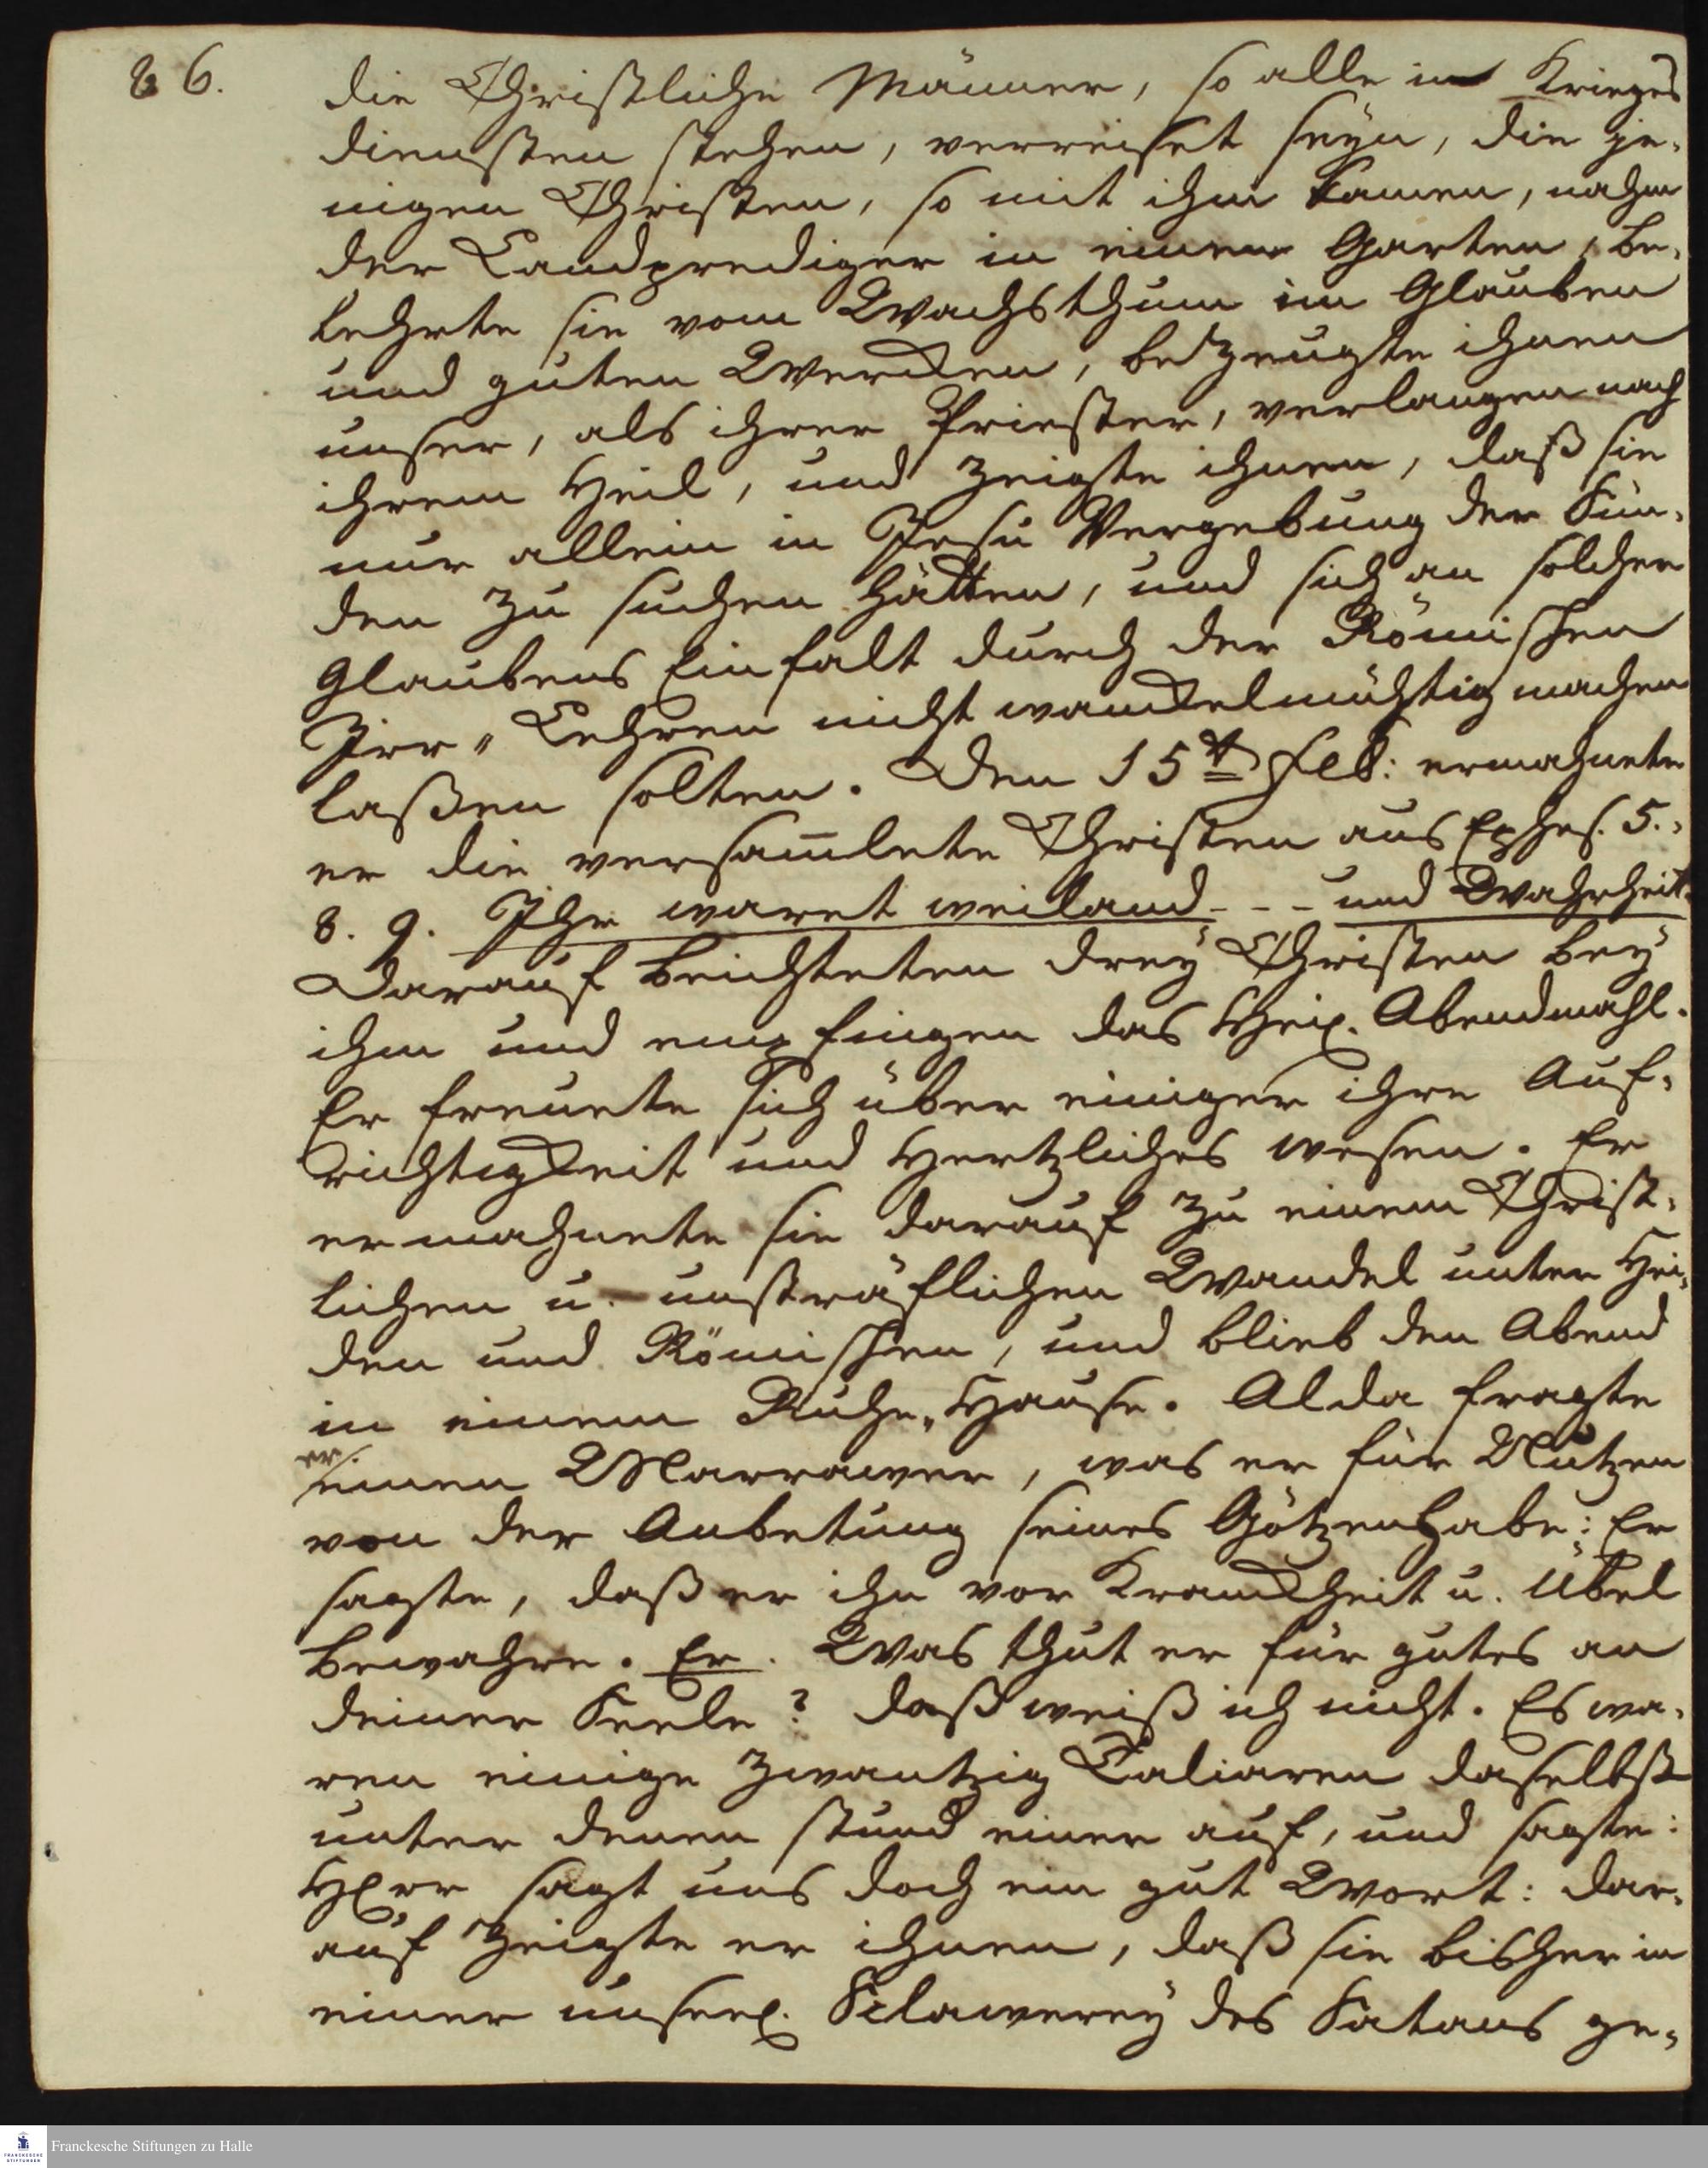 86.
die Christliche Männer, so alle in Krieges
diensten stehen, verreiset seyn, die je-
nigen Christen, so mit ihm kamen, nahm
der Landprediger in einen Garten, be-
lehrte sie vom Wachsthum im Glauben
und guten Wercken, bezeugte ihnen
unser, als ihrer Priester, verlangen nach
ihrem Heil, und zeigte ihnen, daß sie
nur allein in Jesu Vergebung der Sün-
den zu suchen hätten, und sich an solcher
Glaubens Einfalt durch der Römischen
Irr- Lehren nicht wanckelmühtig machen
laßen solten. Den 15t Feb: ermahnete
er die versam̅lete Christen aus Ephes. 5.,
8. 9. Ihr waret weiland - - - und Wahrheit.
Darauf beichteten drey Christen bey
ihm und empfingen das Heil. Abendmahl.
Er freuete sich über einiger ihre Auf-
richtigkeit und Hertzliches wesen. Er
ermahnete sie darauf zu einem Christ-
lichen u. unsträflichen Wandel unter Hei-
den und Römischen, und blieb den Abend
in einem Ruhe-Hause. Alda fragte
er
einen Marrawer, was er für Nutzen
von der Anbetung seines Götzen habe: Er
sagte, daß er ihn vor Kranckheit u. Übel
bewahre. Er. Was thut er für gutes an
deiner Seele? daß weiß ich nicht. Es wa-
ren einige zwantzig Caliaren daselbst
unter denen stund einer auf, und sagte:
HErr sagt uns doch ein gut Wort: dar-
auf zeigte er ihnen, daß sie bisher in
einer unseel. Sclawerey des Satans ge-
Franckesche Stiftungen zu Halle
FRANCKESCHE
STIFTUNGEN